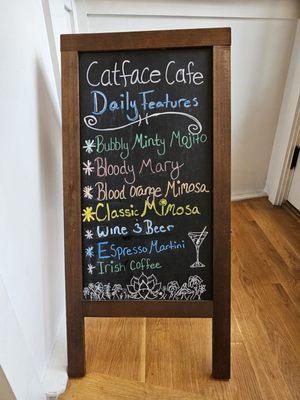 Catface Cafe
Daily Features
Bubbly Minty Mojito
Bloody Mary
Blood Orange Mimosa
Classic Mimosa
Wine & Beer
Espresso Martini
Irish Coffee